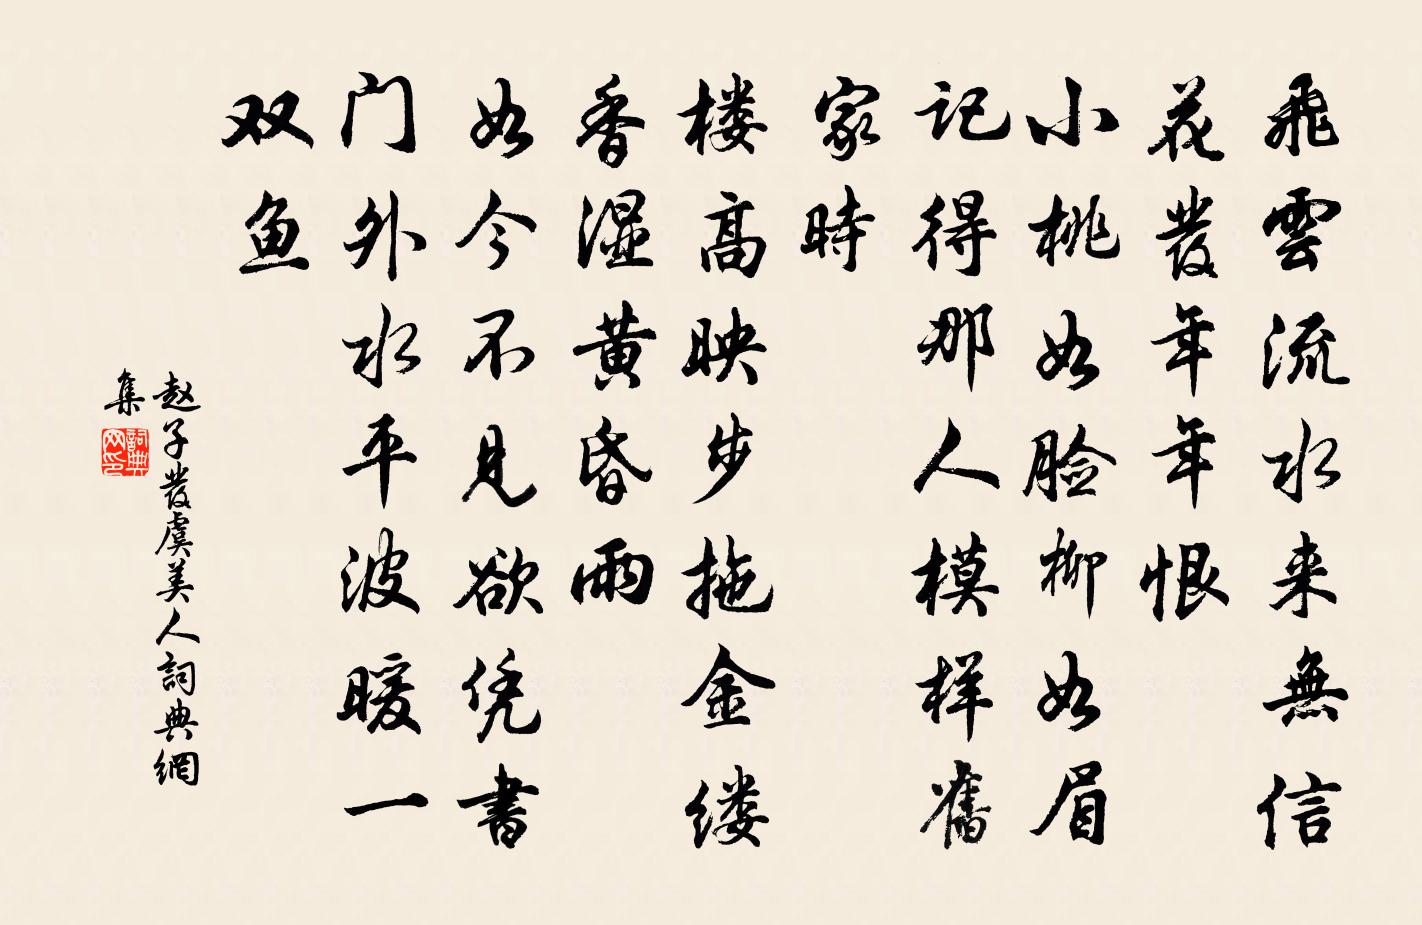 飛雲流水来無信
花發年年恨
小桃如脸柳如眉
记得那人模样舊
家時
楼高映步拖金缕
香湿黄昏雨
如今不见欲凭書
门外水平波暖一
双鱼
赵子發虞美人詞典網
集
詞典
网印